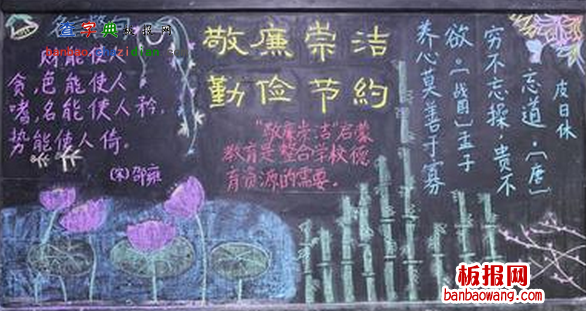 查字典板报网
财能使人
贪,色能使人
嗜,名能使人矜,
势能使人倚。
(宋)邵雍
敬廉崇洁
勤俭节约
“敬廉崇洁”启蒙
教育是整合学校德
育资源的需要。
养心莫善于寡
欲·〔战国〕孟子
穷不忘操 贵不
忘道·〔唐〕
皮日休
板报网
banbaowang.com